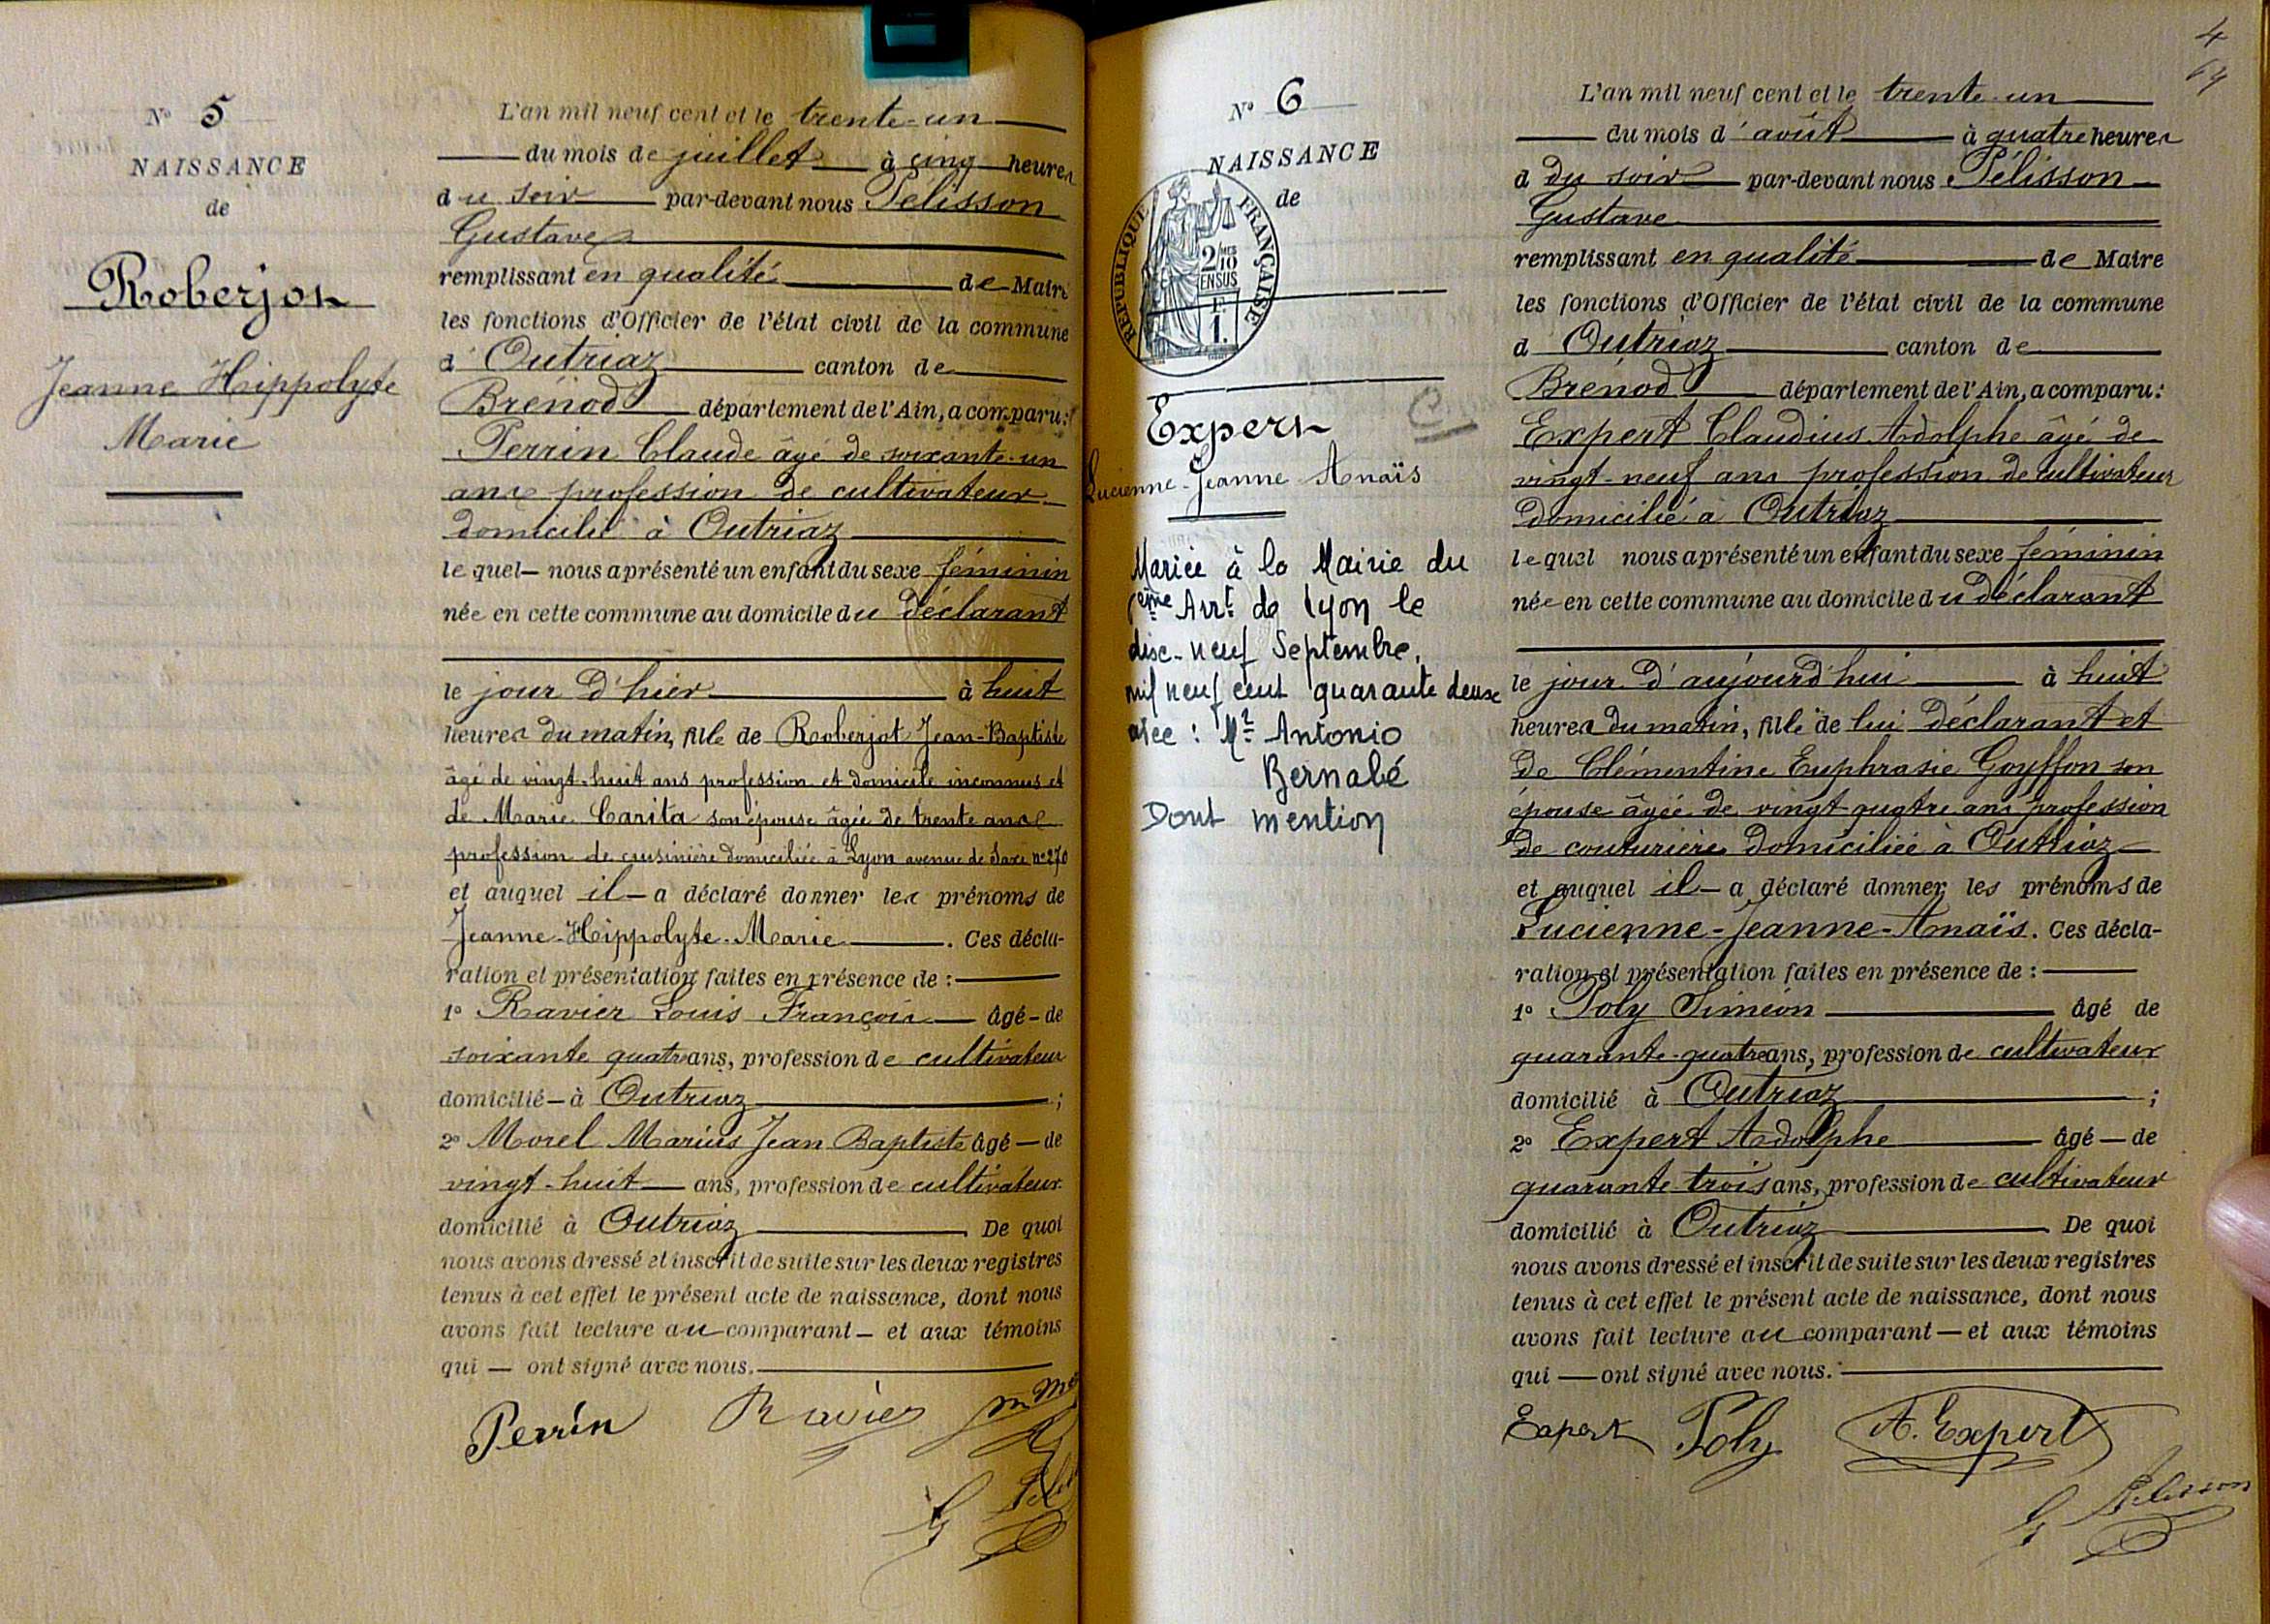 N° 5
NAISSANCE
de
Roberjon
Jeanne Hippolyte
Marie
L'an mil neuf cent et le trente-un
du mois de juillet à cinq heures
du soir par-devant nous Pélisson
Gustave
remplissant en qualité de Maire
les fonctions d'Officier de l'état civil de la commune
d'Outriaz canton de
Brénod département de l'Ain, a comparu:
Perrin Claude âgé de soixante-un
ans profession de cultivateur
domicilié à Outriaz
lequel nous a présenté un enfant du sexe féminin
née en cette commune au domicile du déclarant
le jour d'hier à huit
heures du matin, fille de Roberjot Jean-Baptiste
âgé de vingt-huit ans profession et domicile inconnus et
de Marie Carita son épouse âgée de trente ans
profession de cuisinière domiciliée à Lyon avenue de Saxe n° 270
et auquel il a déclaré donner les prénoms de
Jeanne-Hippolyte-Marie. Ces décla-
ration et présentation faites en présence de :
1° Ravier Louis François âgé de
soixante quatre ans, profession de cultivateur
domicilié à Outriaz ;
2° Morel Marius Jean Baptiste âgé de
vingt-huit ans, profession de cultivateur
domicilié à Outriaz. De quoi
nous avons dressé et inscrit de suite sur les deux registres
tenus à cet effet le présent acte de naissance, dont nous
avons fait lecture au comparant et aux témoins
qui ont signé avec nous.
Perrin Ravier
4
64
N° 6
NAISSANCE
de
RÉPUBLIQUE FRANÇAISE
2/10
EN SUS
F.
1.
Expert
Lucienne-Jeanne Anaïs
Mariée à la Mairie du
Arrt de Lyon le
dix-neuf Septembre,
mil neuf cent quarante deux
avec : Mr Antonio
Bernabé
Dont mention
L'an mil neuf cent et le trente-un
du mois d'août à quatre heures
d du soir par-devant nous Pélisson
Gustave
remplissant en qualité de Maire
les fonctions d'Officier de l'état civil de la commune
d Outriaz canton de
Brénod département de l'Ain, a comparu:
Expert Claudius Adolphe âgé de
vingt-neuf ans profession de cultivateur
domicilié à Outriaz
lequel nous a présenté un enfant du sexe féminin
née en cette commune au domicile du déclarant
le jour d'aujourd'hui à huit
heures du matin, fille de lui déclarant et
de Clémentine Euphrasie Goyffon son
épouse âgée de vingt-quatre ans profession
de couturière domiciliée à Outriaz
et auquel il a déclaré donner les prénoms de
Lucienne-Jeanne-Anaïs. Ces décla-
ration et présentation faites en présence de :
1° Poly Siméon âgé de
quarante-quatre ans, profession de cultivateur
domicilié à Outriaz ;
2° Expert Adolphe âgé de
quarante-trois ans, profession de cultivateur
domicilié à Outriaz De quoi
nous avons dressé et inscrit de suite sur les deux registres
tenus à cet effet le présent acte de naissance, dont nous
avons fait lecture au comparant et aux témoins
qui ont signé avec nous.
Expert Poly A. Expert
G Pélisson